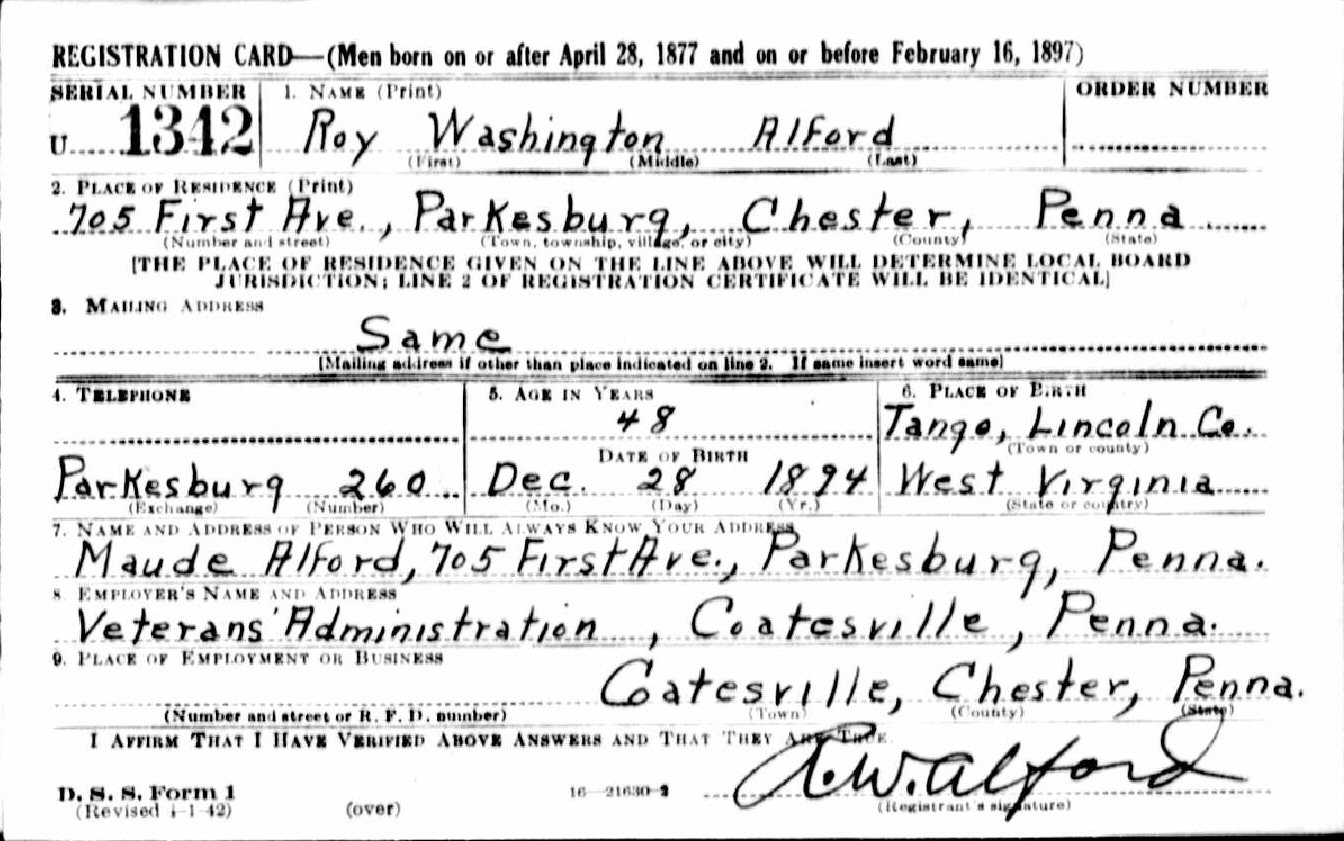 REGISTRATION CARD—(Men born on or after April 28, 1877 and on or before February 16, 1897)
SERIAL NUMBER 1. NAME (Print) ORDER NUMBER
U 1342 Roy Washington Alford
(First) (Middle) (Last)
2. PLACE OF RESIDENCE (Print)
705 First Ave., Parkesburg, Chester, Penna
(Number and street) (Town, township, village, or city) (County) (State)
[THE PLACE OF RESIDENCE GIVEN ON THE LINE ABOVE WILL DETERMINE LOCAL BOARD
JURISDICTION; LINE 2 OF REGISTRATION CERTIFICATE WILL BE IDENTICAL]
3. MAILING ADDRESS
Same
[Mailing address if other than place indicated on line 2. If same insert word same]
4. TELEPHONE 5. AGE IN YEARS 6. PLACE OF BIRTH
48 Tango, Lincoln Co.
DATE OF BIRTH (Town or county)
Parkesburg 260 Dec. 28 1894 West Virginia
(Exchange) (Number) (Mo.) (Day) (Yr.) (State or country)
7. NAME AND ADDRESS OF PERSON WHO WILL ALWAYS KNOW YOUR ADDRESS
Maude Alford, 705 First Ave., Parkesburg, Penna.
8. EMPLOYER'S NAME AND ADDRESS
Veterans' Administration, Coatesville, Penna.
9. PLACE OF EMPLOYMENT OR BUSINESS
Coatesville, Chester, Penna.
(Number and street or R. F. D. number) (Town) (County) (State)
I AFFIRM THAT I HAVE VERIFIED ABOVE ANSWERS AND THAT THEY ARE TRUE.
R.W. Alford
D. S. S. Form 1 16—21630-2
(Revised 4-1-42) (over) (Registrant's signature)